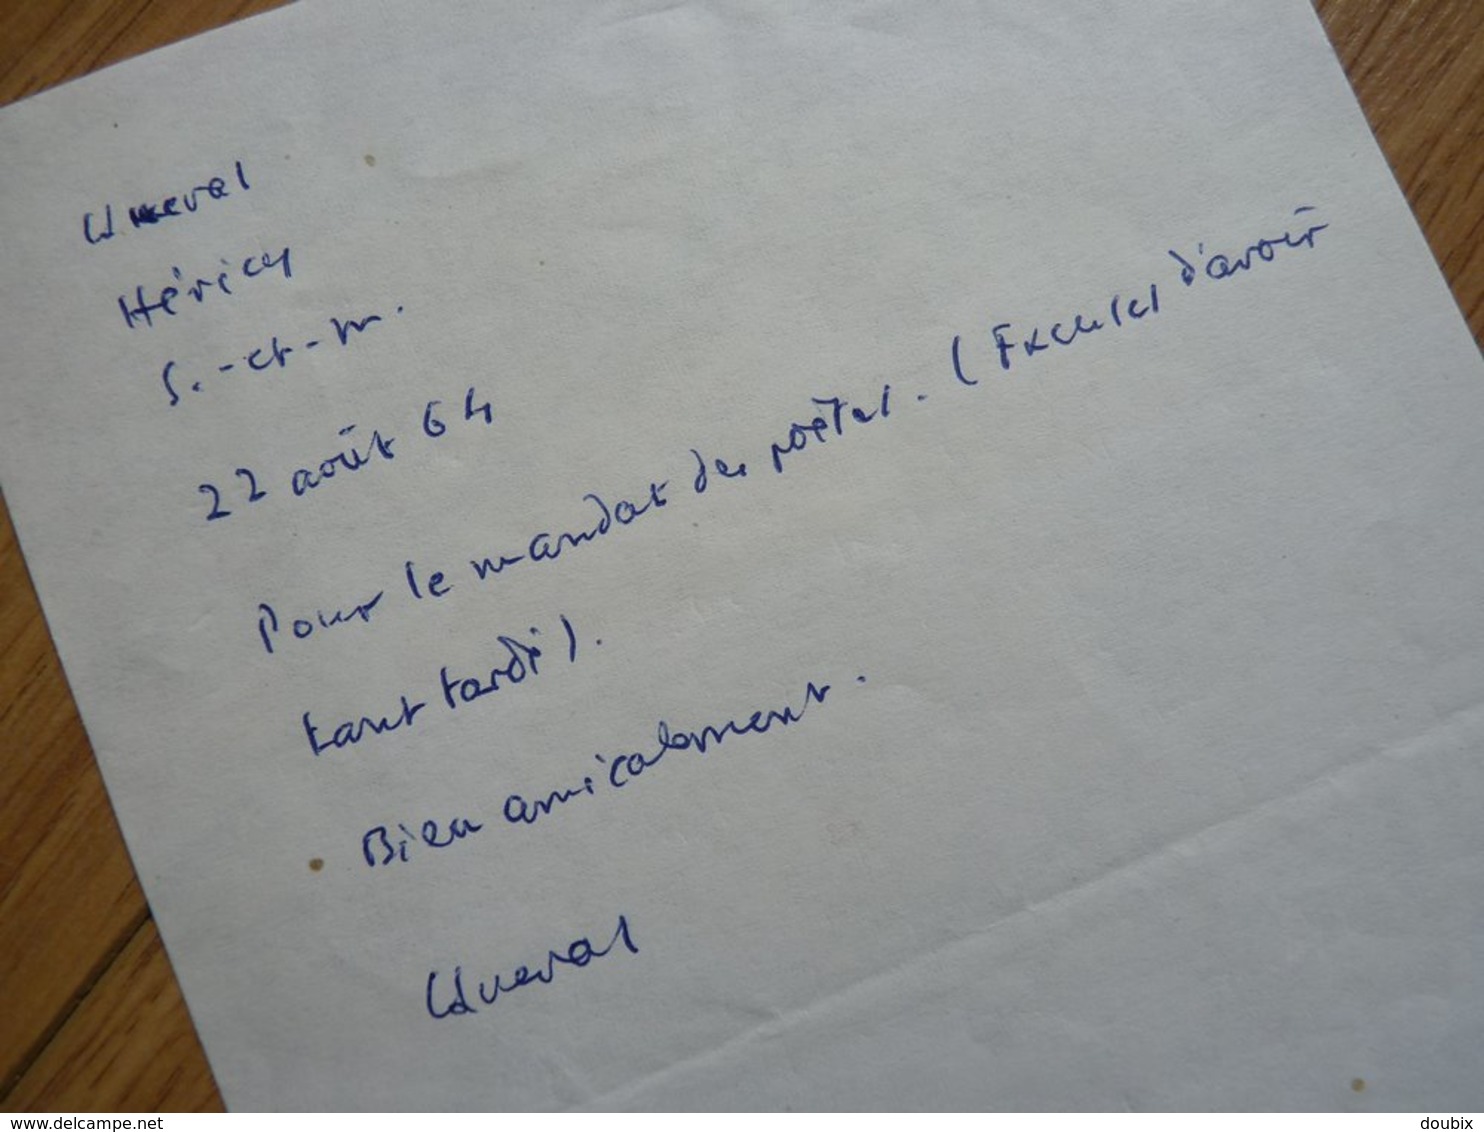 Queval
Héricy
S.-et-M.
22 août 64
Pour le mandat des poètes. (Excuses d'avoir
tant tardé).
Bien amicalement.
Queval
delcampe.net
doubix